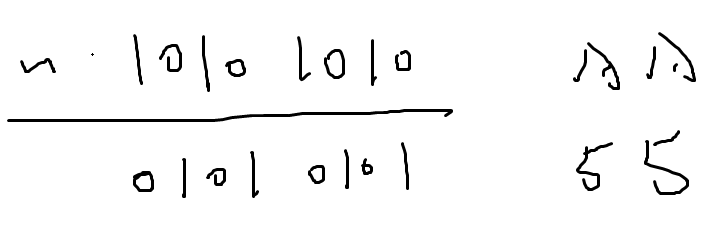 ~ 1010 1010 AA
0101 0101 55